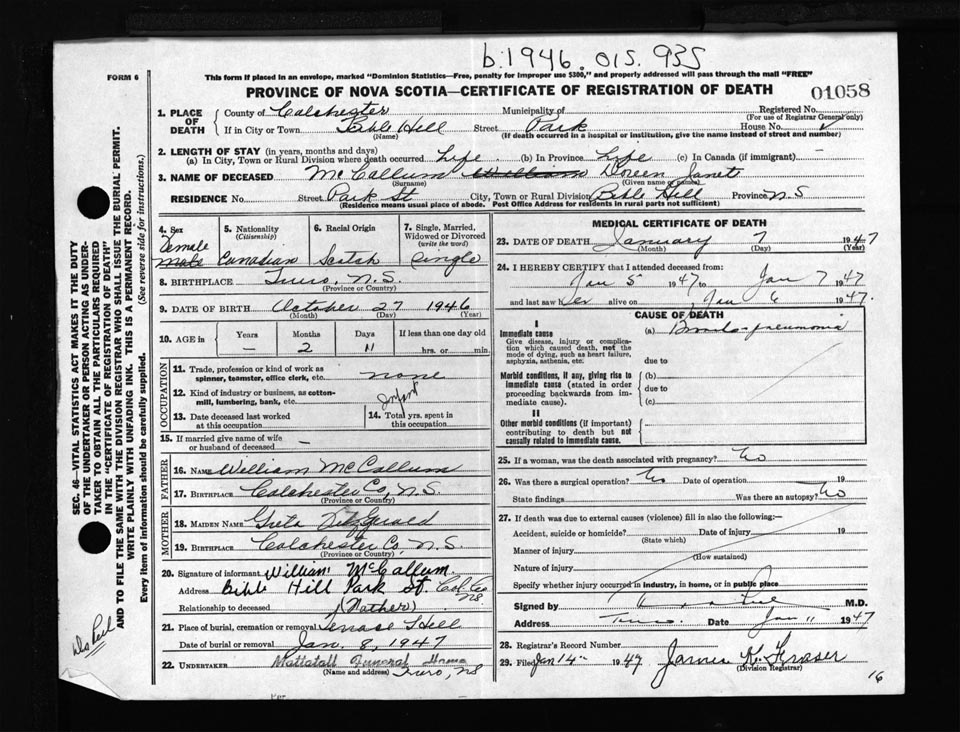 b.1946.015.935
FORM 6
This form if placed in an envelope, marked "Dominion Statistics—Free, penalty for improper use $300," and properly addressed will pass through the mail "FREE"
PROVINCE OF NOVA SCOTIA—CERTIFICATE OF REGISTRATION OF DEATH
01058
1. PLACE OF DEATH
County of Colchester Municipality of Registered No.
(For use of Registrar General only)
If in City or Town Bible Hill Street Park House No.
(Name) (If death occurred in a hospital or institution, give the name instead of street and number)
2. LENGTH OF STAY (in years, months and days)
(a) In City, Town or Rural Division where death occurred life (b) In Province life (c) In Canada (if immigrant) —
3. NAME OF DECEASED McCallum William Doreen Janet
(Surname) (Given name or names)
RESIDENCE No. Street Park St City, Town or Rural Division Bible Hill Province N.S
(Residence means usual place of abode. Post Office Address for residents in rural parts not sufficient)
4. Sex Female Male
5. Nationality (Citizenship) Canadian
6. Racial Origin Scotch
7. Single, Married, Widowed or Divorced (write the word) Single
8. BIRTHPLACE Truro, N.S.
(Province or Country)
9. DATE OF BIRTH October 27 1946
(Month) (Day) (Year)
10. AGE in Years Months Days If less than one day old
— 2 11 hrs. or min.
OCCUPATION
11. Trade, profession or kind of work as spinner, teamster, office clerk, etc. none
12. Kind of industry or business, as cotton-mill, lumbering, bank, etc. Infant
13. Date deceased last worked at this occupation
14. Total yrs. spent in this occupation
15. If married give name of wife or husband of deceased —
FATHER
16. NAME William McCallum
17. BIRTHPLACE Colchester Co, N.S.
(Province or Country)
MOTHER
18. MAIDEN NAME Greta Fitzgerald
19. BIRTHPLACE Colchester Co, N.S.
(Province or Country)
20. Signature of informant William McCallum
Address Bible Hill Park St. Col. Co NS
Relationship to deceased (Father)
21. Place of burial, cremation or removal Terrace Hill
Date of burial or removal Jan. 8, 1947
22. UNDERTAKER Mattatall Funeral Home
(Name and address) Truro, NS
MEDICAL CERTIFICATE OF DEATH
23. DATE OF DEATH January 7 1947
(Month) (Day) (Year)
24. I HEREBY CERTIFY that I attended deceased from:
Jan 5 1947 to Jan 7 1947
and last saw her alive on Jan 6 1947.
CAUSE OF DEATH
I
Immediate cause (a) Broncho pneumonia
Give disease, injury or complication which caused death, not the mode of dying, such as heart failure, asphyxia, asthenia, etc.
due to
Morbid conditions, if any, giving rise to immediate cause (stated in order proceeding backwards from immediate cause).
(b)
due to
(c)
II
Other morbid conditions (if important) contributing to death but not causally related to immediate cause.
25. If a woman, was the death associated with pregnancy? No
26. Was there a surgical operation? No Date of operation 19
State findings Was there an autopsy? No
27. If death was due to external causes (violence) fill in also the following:—
Accident, suicide or homicide? Date of injury 19
(State which)
Manner of injury
(How sustained)
Nature of injury
Specify whether injury occurred in industry, in home, or in public place
Signed by M.D.
Address Truro. Date Jan 11 1947
28. Registrar's Record Number
29. Filed Jan 14 1947 James K. Fraser
(Division Registrar)
16
SEC. 46—VITAL STATISTICS ACT MAKES IT THE DUTY
OF THE UNDERTAKER OR PERSON ACTING AS UNDER-
TAKER TO OBTAIN ALL THE PARTICULARS REQUIRED
IN THE "CERTIFICATE OF REGISTRATION OF DEATH"
AND TO FILE THE SAME WITH THE DIVISION REGISTRAR WHO SHALL ISSUE THE BURIAL PERMIT.
WRITE PLAINLY WITH UNFADING INK. THIS IS A PERMANENT RECORD.
Every item of information should be carefully supplied. (See reverse side for instructions.)